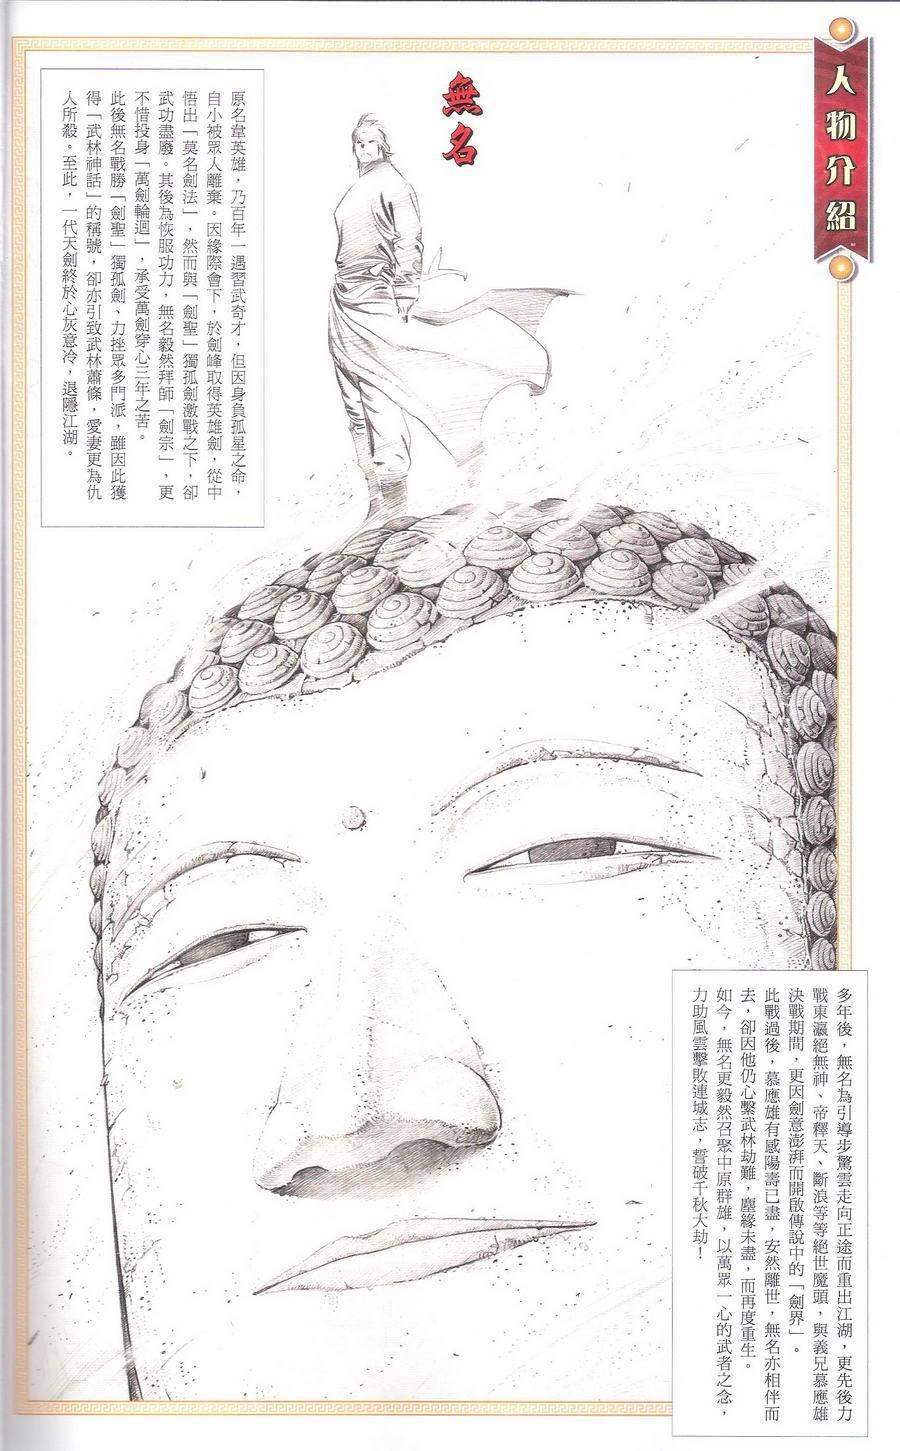 人物介紹
無名
原名韋英雄，乃百年一遇習武奇才，但因身負孤星之命，
自小被眾人離棄。因緣際會下，於劍峰取得英雄劍，從中
悟出「莫名劍法」，然而與「劍聖」獨孤劍激戰之下，卻
武功盡廢。其後為恢服功力，無名毅然拜師「劍宗」，更
不惜投身「萬劍輪迴」，承受萬劍穿心三年之苦。
此後無名戰勝「劍聖」獨孤劍、力挫眾多門派，雖因此獲
得「武林神話」的稱號，卻亦引致武林蕭條，愛妻更為仇
人所殺。至此，一代天劍終於心灰意冷，退隱江湖。
多年後，無名為引導步驚雲走向正途而重出江湖，更先後力
戰東瀛絕無神、帝釋天、斷浪等等絕世魔頭，與義兄慕應雄
決戰期間，更因劍意澎湃而開啟傳說中的「劍界」。
此戰過後，慕應雄有感陽壽已盡，安然離世，無名亦相伴而
去，卻因他仍心繫武林劫難，塵緣未盡，而再度重生。
如今，無名更毅然召聚中原群雄，以萬眾一心的武者之念，
力助風雲擊敗連城志，誓破千秋大劫！